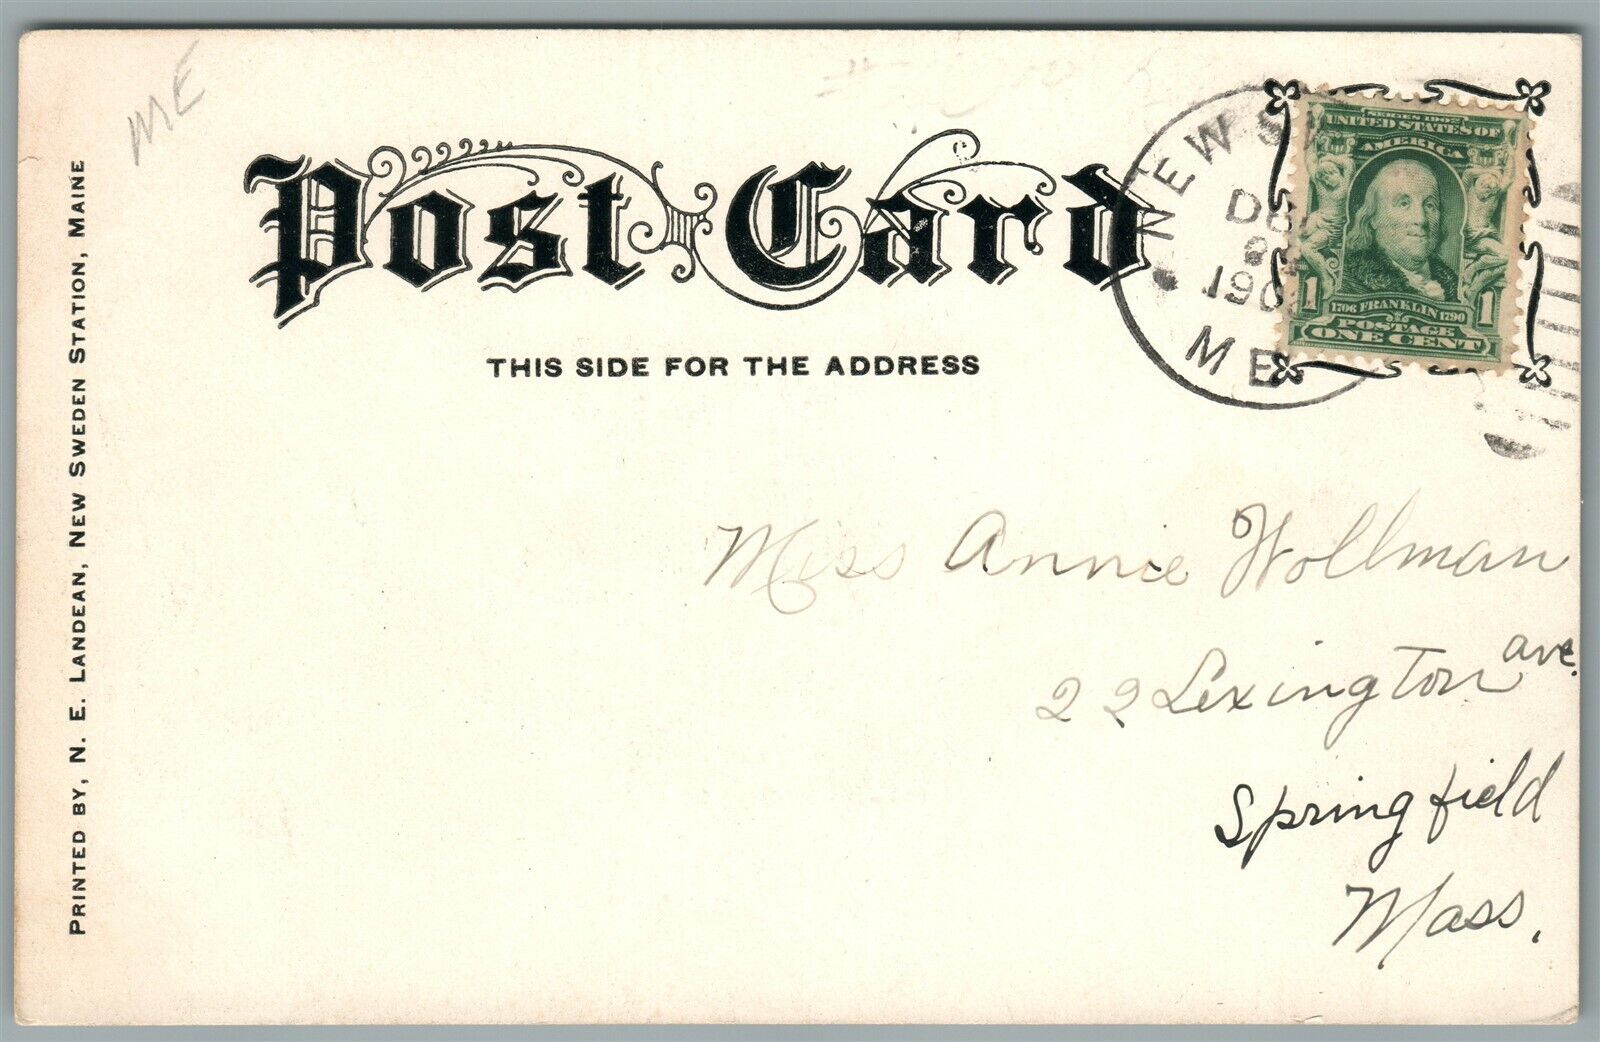 ME
PRINTED BY, N. E. LANDEAN, NEW SWEDEN STATION, MAINE
Post Card
THIS SIDE FOR THE ADDRESS
NEW
ME
SERIES 1902
UNITED STATES OF
AMERICA
1 1
1706 FRANKLIN 1790
POSTAGE
ONE CENT
Miss Annie Wollman
22 Lexington ave.
Springfield
Mass.